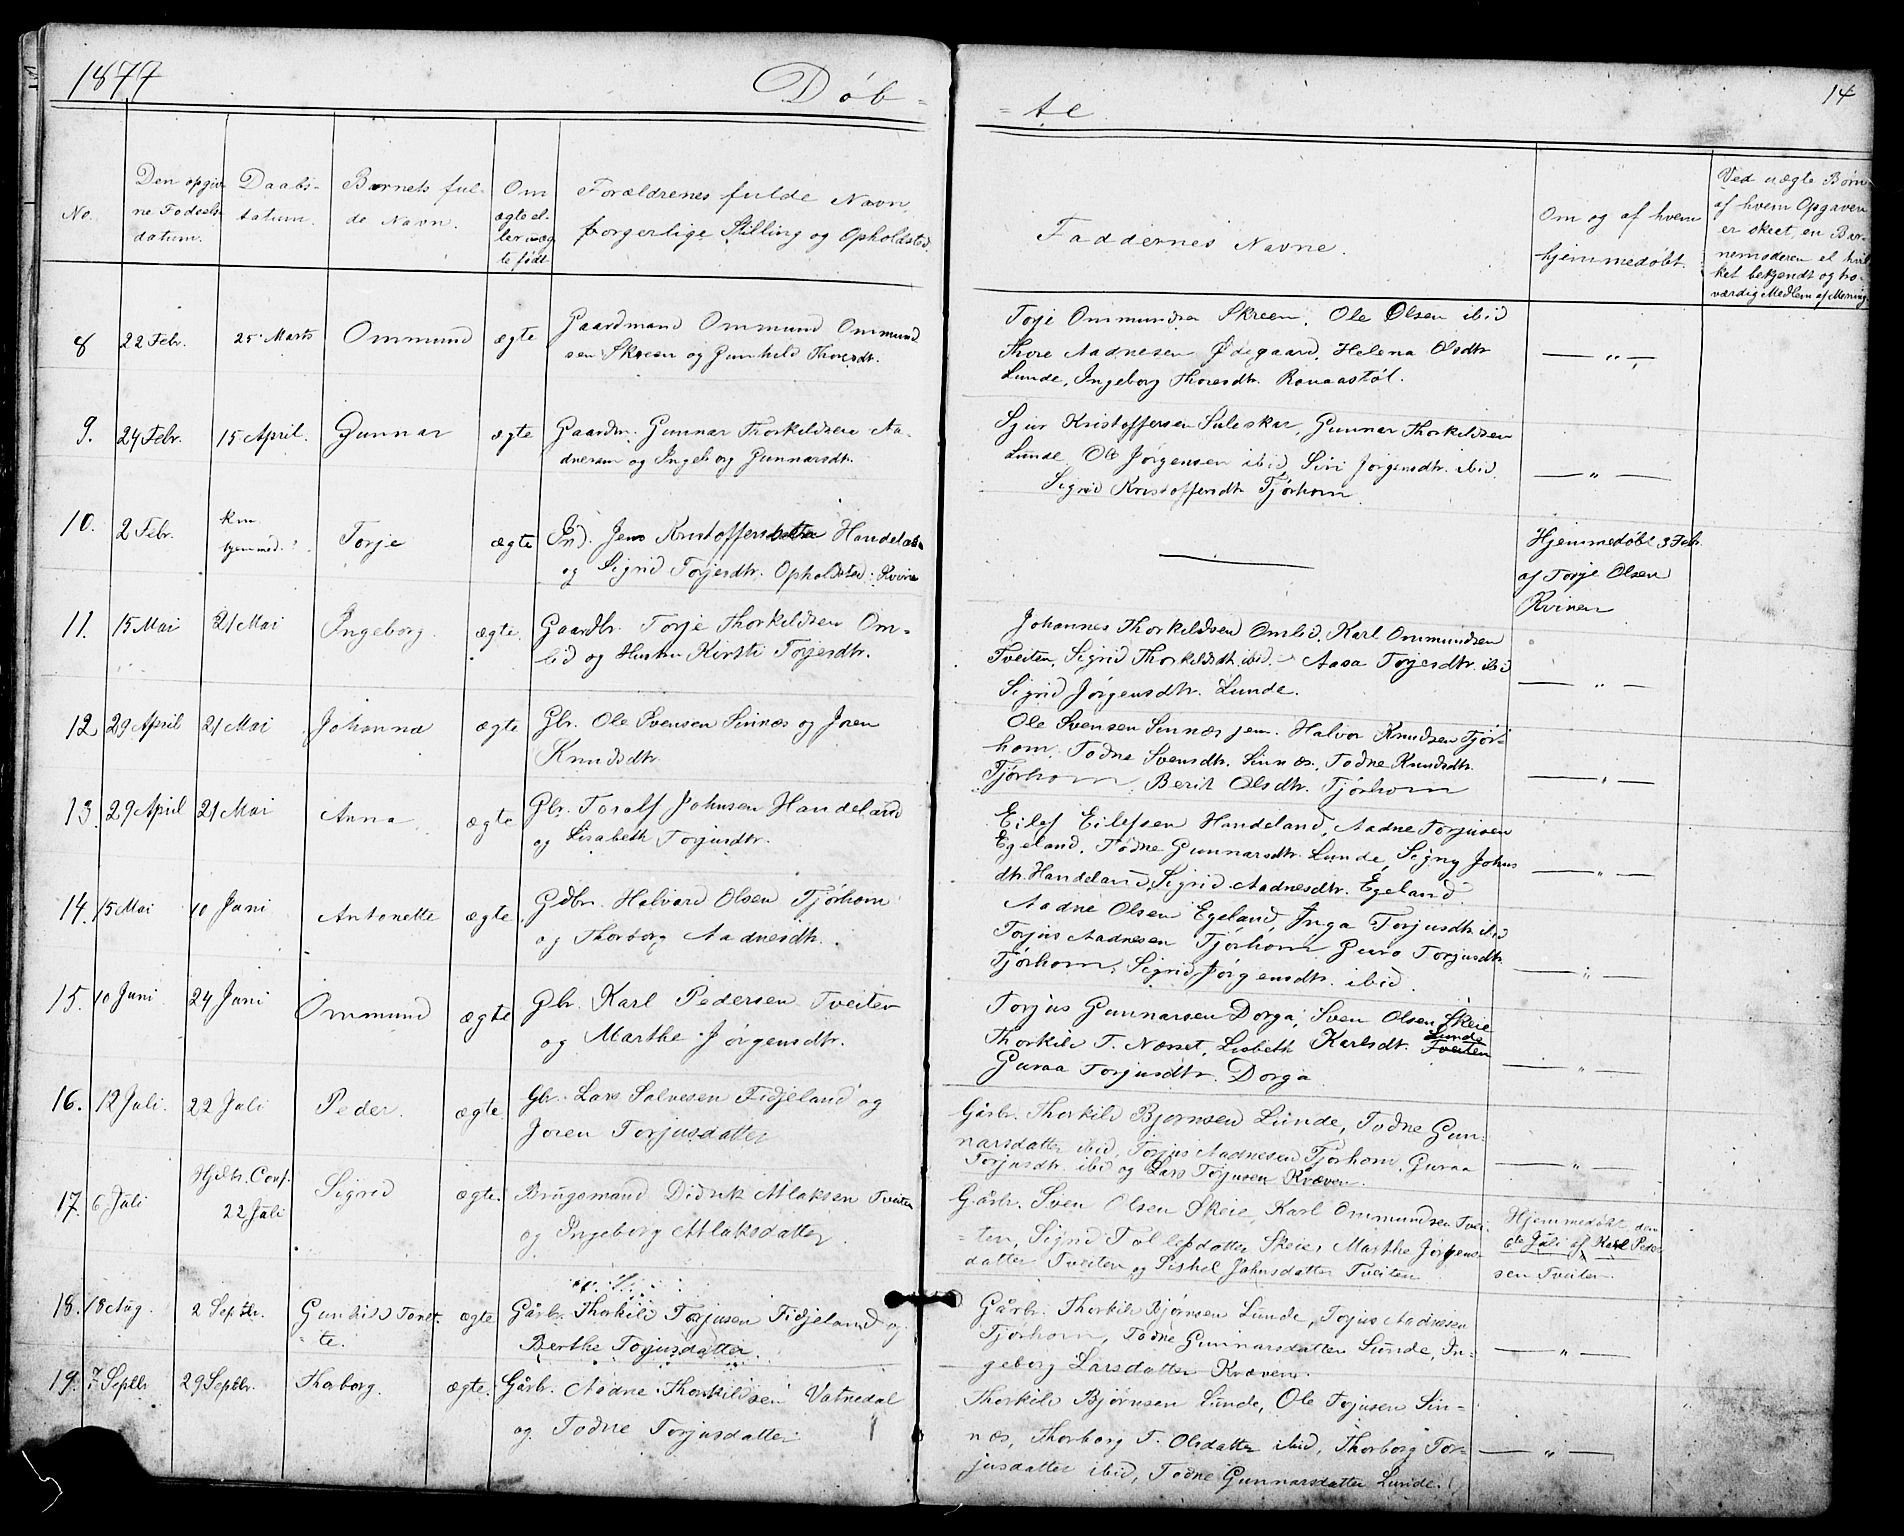 1877
Døb-
-te
14
No.
Den opgiv-
ne Fødsels-
datum.
Daabs-
datum.
Barnets ful-
de Navn.
Om
ægte el-
ler uæg-
te født
Forældrenes fulde Navn,
borgerlige Stilling og Opholdsted.
Faddernes Navne.
Om og af hvem
hjemmedøbt.
Ved uægte Børn
af hvem Opgaven
er skeet, en Bar-
nemoderen el. hvil-
ket bekjendt og tro-
værdig Medlem af Menig
8 22 Febr. 25 Marts Ommund ægte
Gaardmand Ommund Ommund
sen Skreen og Gunhild Thoresdt.
Torje Ommundsen Skreen, Ole Olsen ibid
Thore Aadnesen Ødegaard, Helena Olsdtr
Lunde, Ingeborg Thoresdtr. Ronaastøl.
— " —
9. 24 Febr. 15 April. Gunnar ægte
Gaardm. Gunnar Thorkildsen Aa-
dneram og Ingeborg Gunnarsdtr.
Sjur Kristoffersen Suleskar, Gunnar Thorkildsen
Lunde, Ole Jørgensen ibid, Siri Jørgensdtr. ibid
Sigrid Kristoffersdtr Tjørhom.
— " —
10. 2 Febr. kun
hjemmed. Torje ægte
Ind. Jens Kristoffersen Handeland
og Sigrid Torjesdtr. Opholdsted: Kvinen
—
Hjemmedøbt 3 Febr.
af Torje Olsen
Kvinen
11. 15 Mai 21 Mai Ingeborg. ægte.
Gaardbr. Torje Thorkildsen Om-
lid og Hustru Kirsti Torjesdtr.
Johannes Thorkildsen Omlid, Karl Ommundsen
Tveiten, Sigrid Thorkildsdt. ibid. Aasa Torjesdtr. ibid
Sigrid Jørgensdtr. Lunde.
— " —
12 29 April 21 Mai Johanna ægte
Gbr. Ole Svensen Sinnæs og Joren
Knudsdtr.
Ole Svensen Sinnæs jun. Halvor Knudsen Tjør-
hom. Todne Svensdtr. Sinnæs, Todne Knudsdtr.
Tjørhom, Berit Olsdtr. Tjørhom
— " —
13. 29 April 21 Mai Anna ægte
Gbr. Toralf Johnsen Handeland
og Lisabeth Torjusdtr.
Eilef Eilefsen Handeland, Aadne Torjusen
Egeland, Todne Gunnarsdtr. Lunde, Signy Johns
dtr. Handeland, Sigrid Aadnesdtr. Egeland.
— " —
14. 15 Mai 10 Juni Antonette ægte
Gdbr. Halvard Olsen Tjørhom
og Thorborg Aadnesdtr.
Aadne Olsen Egeland, Inga Torjusdtr. ibid
Torjus Aadnesen Tjørhom, Guro Torjusdtr.
Tjørhom, Sigrid Jørgensdtr. ibid.
— " —
15. 10 Juni 24 Juni Ommund ægte
Gbr. Karl Pedersen Tveiten
og Marthe Jørgensdtr.
Torjus Gunnarsen Dorga, Sven Olsen Skeie
Thorkild T. Næsset, Lisbeth Karlsdt. Lunde
Tveiten
Guraa Torjusdtr. Dorga
— " —
16. 12 Juli. 22 Juli Peder. ægte.
Gbr. Lars Salvesen Fidjeland og
Joren Torjusdatter
Gårbr. Thorkild Bjørnsen Lunde, Todne Gun-
narsdatter ibid, Torjus Aadnesen Tjørhom, Guraa
Torjusdtr. ibid og Lars Torjusen Kræven.
— " —
17. 6 Juli Hjdbt. Conf.
22 Juli Sigrid ægte.
Brugsmand Didrik Atlaksen Tveiten
og Ingeborg Atlaksdatter.
Gårbr. Sven Olsen Skeie, Karl Ommundsen Tvei-
-ten, Sigrid Tollefsdatter Skeie, Marthe Jørgens-
datter Tveiten og Sishel Johnsdatter Tveiten.
Hjemmedøbt den
6te Juli af Karl Peder-
sen Tveiten.
18. 18 Aug. 2 Septbr. Gunhild Tonet-
-te. ægte
Gårbr. Thorkild Torjusen Fidjeland og
Berthe Torjusdatter.
Gårbr. Thorkild Bjørnsen Lunde, Torjus Aadnesen
Tjørhom, Todne Gunnarsdatter Lunde, In-
geborg Larsdatter Kræven.
— " —
19. 7 Septbr 29 Septbr. Thorborg. ægte.
Gårbr. Aadne Thorkildsen Vatnedal
og Todne Torjusdatter
Thorkild Bjørnsen Lunde, Ole Torjusen Sin-
næs, Thorborg T. Olsdatter ibid, Thorborg Tor-
jusdatter ibid, Todne Gunnarsdatter Lunde.
— " —